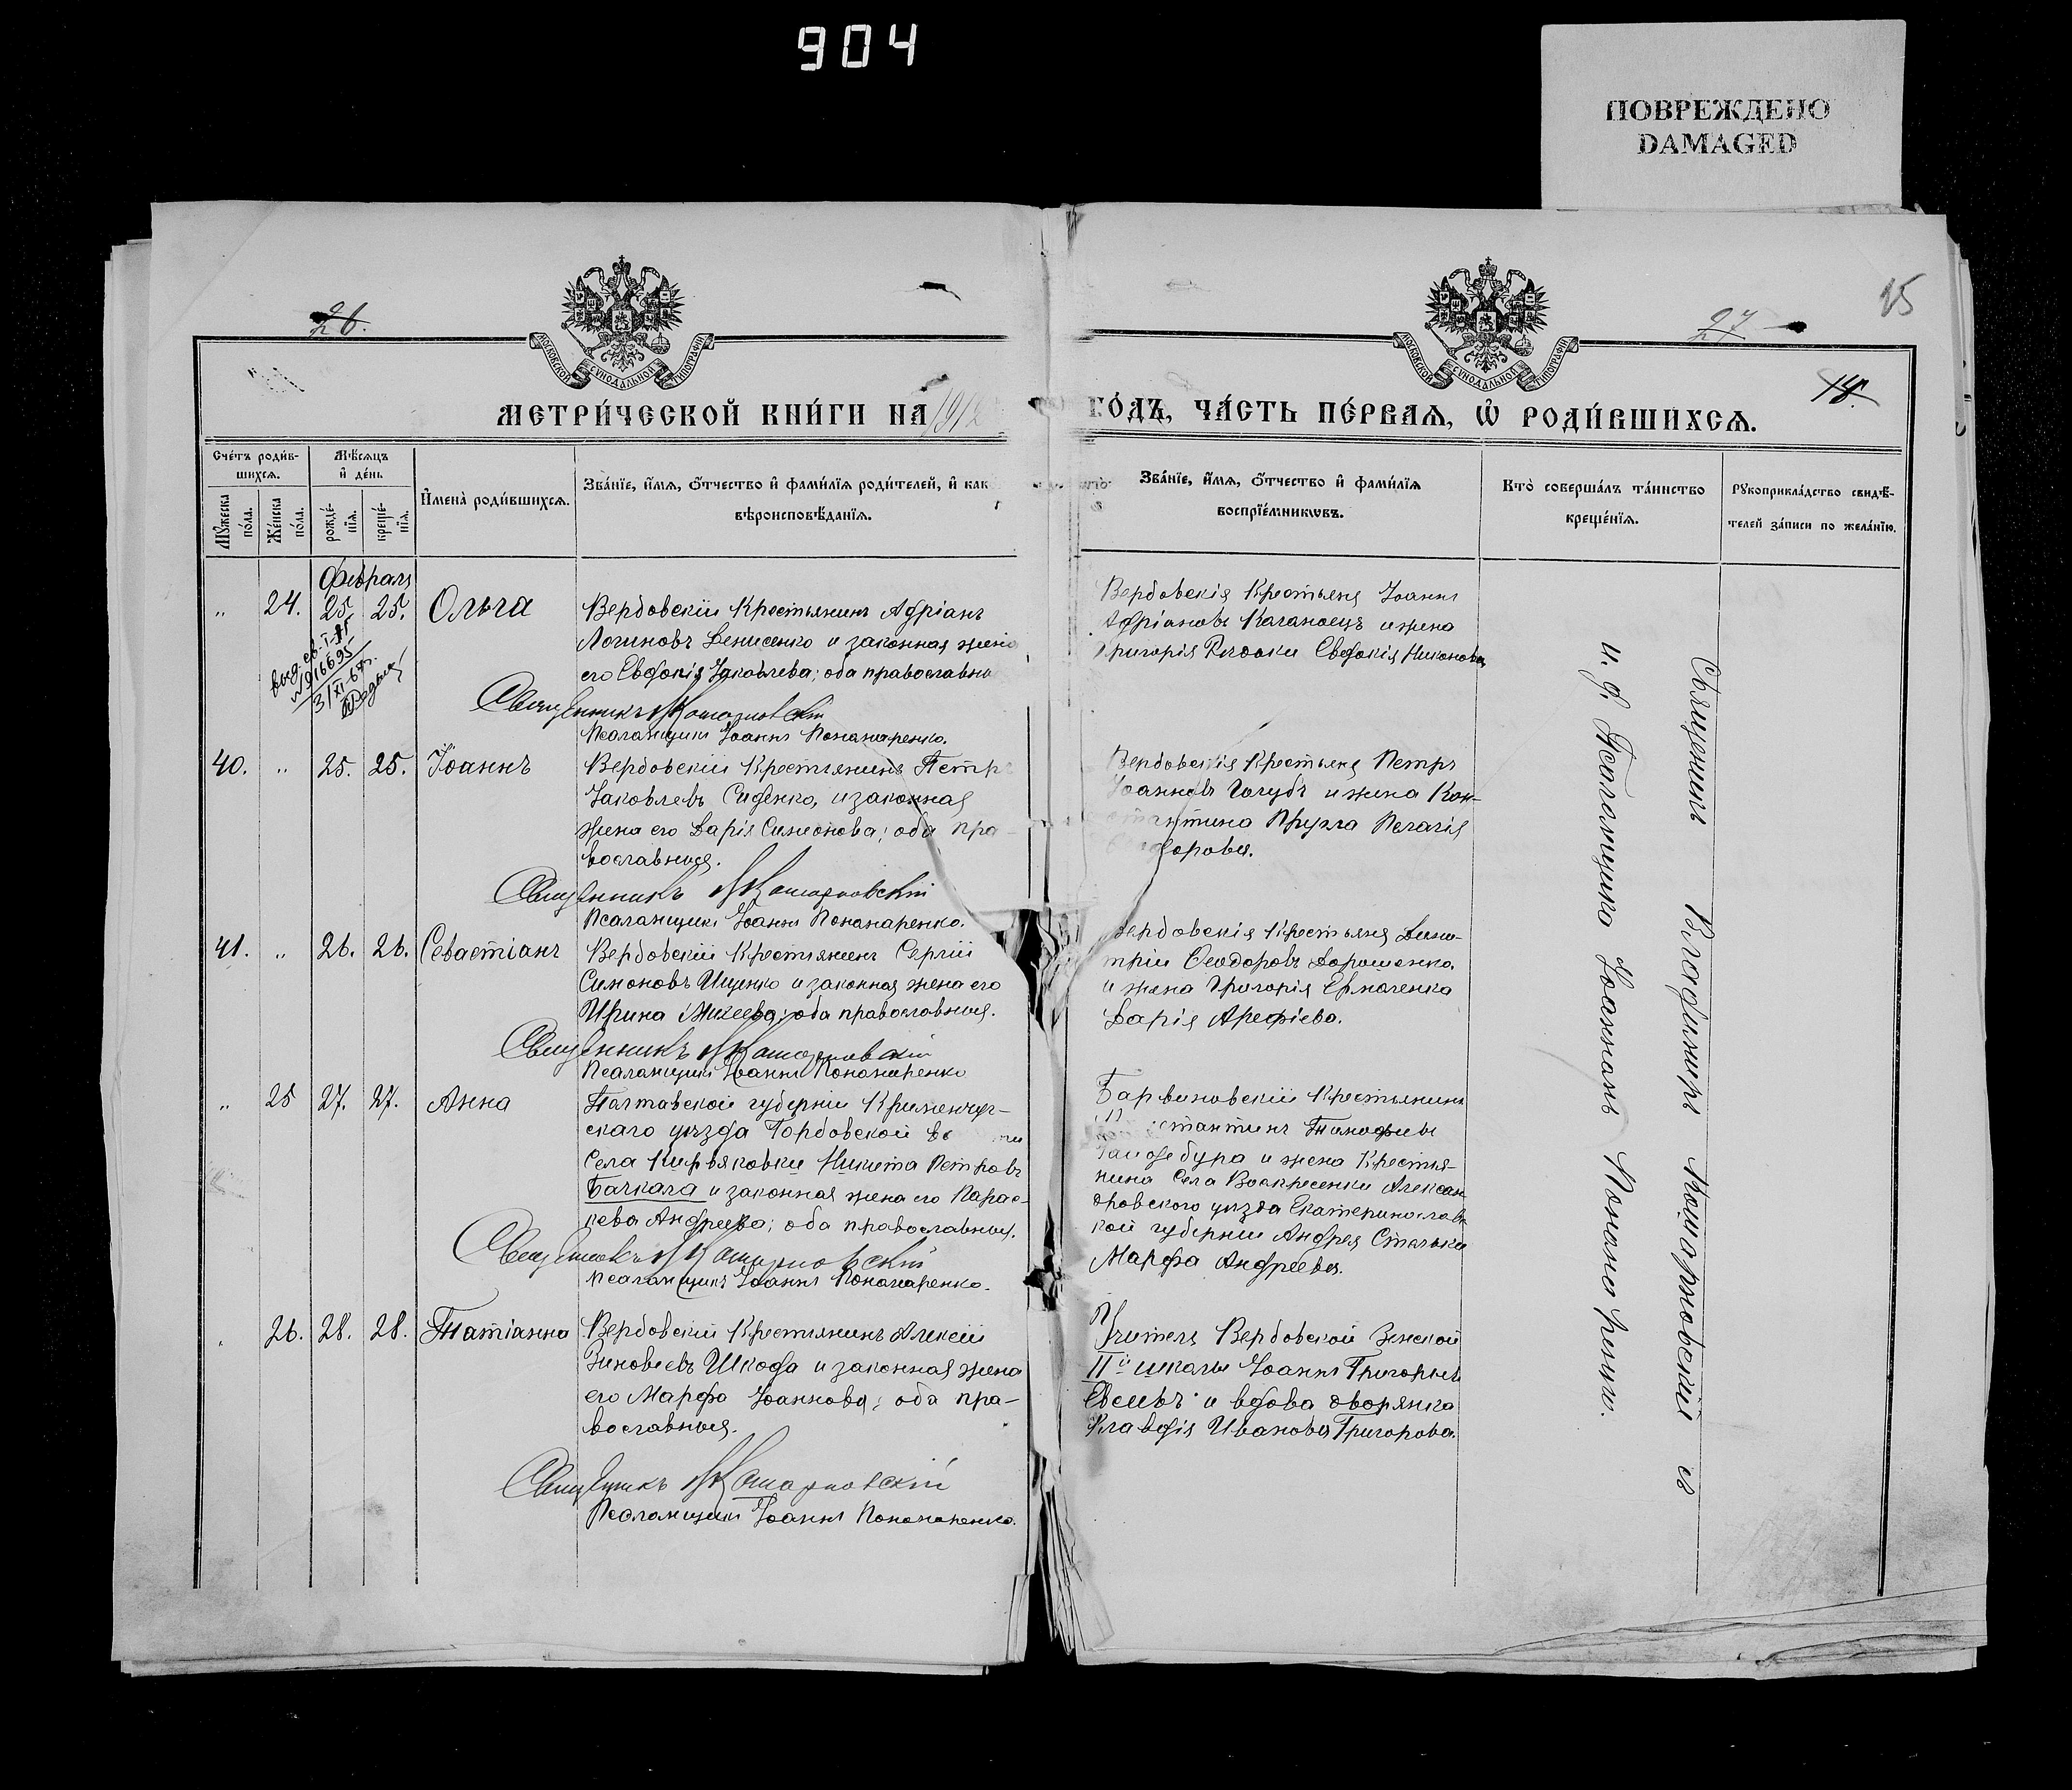 904
ПОВРЕЖДЕНО
DAMAGED
26.
27
15
МОСКОВСКОЙ СѴНОДАЛЬНОЙ ТИПОГРАФІИ
МОСКОВСКОЙ СѴНОДАЛЬНОЙ ТИПОГРАФІИ
МЕТРИ́ЧЕСКОЙ КНИ́ГИ НА 1912
ГО́ДЪ, ЧА́СТЬ ПЕ́РВАѦ, Ѡ҆ РОДИ́ВШИХСѦ.
Сче́тъ роди́в-
шихсѧ.
Мꙋ́жеска по́ла.
Же́нска по́ла.
Мѣ́сѧцъ
и҆ де́нь
рожде́-нїѧ.
креще́-нїѧ.
И҆мена̀ роди́вшихсѧ.
Зва́нїе, и҆́мѧ, ѻ҆́тчество и҆ фами́лїѧ роди́телей, и҆ как
вѣроисповѣ́данїѧ.
Зва́нїе, и҆́мѧ, ѻ҆́тчество и҆ фами́лїѧ
воспрїе́мникѡвъ.
Кто̀ соверша́лъ та́инство
креще́нїѧ.
Рꙋкоприкла́дство свидѣ́-
телей за́писи по жела́нїю.
Февраля
" 24. 25. 25. Ольга
Вербовскій Крестьянинъ Адріанъ
Логиновъ Денисенко и законная жена
его Евдокія Іаковлева; оба православны
Священникъ Кошарновскій
Псаломщикъ Іоаннъ Понамаренко.
Вербовскія Крестьяне Іоаннъ
Адріановъ Каганоецъ и жена
Григорія Евдокія Никонова
40. " 25. 25. Іоаннъ
Вербовскій Крестьянинъ Петръ
Іаковлевъ Сиденко, и законная
жена его Дарія Симонова; оба пра-
вославныя.
Священникъ Кошарновскій
Псаломщикъ Іоаннъ Понамаренко.
Вербовскія Крестьяне Петръ
Іоанновъ Голубъ и жена Кон-
стантина Пругла Пелагія
41. " 26. 26. Севастіанъ
Вербовскій Крестьянинъ Сергій
Симоновъ Ищенко и законная жена его
Ирина Михеева; оба православныя.
Священникъ Кошарновскій
Псаломщикъ Іоаннъ Понамаренко
Вербовскія Крестьяне Дими-
трій Ѳеодоровъ Дорошенко
и жена Григорія Ермоленка
Дарія Арефіева.
" 25 27. 27. Анна
Полтавской губерніи Кременчуг-
скаго уѣзда Горбовской
Села Кирьяковки Никита Петровъ
Бачкала и законная жена его Парас-
кева Андреева; оба православныя.
Священникъ Кошарновскій
Псаломщикъ Іоаннъ Понамаренко.
Барвиновскій Крестьянинъ
Тимофеевъ
Гайдебура и жена Крестья-
нина Села Воскресенки Алексан-
дровского уѣзда Екатеринослав
кой губерніи Андрея Стальки
Марфа Андреева.
26. 28. 28. Татіанна
Вербовскій Крестьянинъ Алексій
Зиновіевъ Шкода и законная жена
его Марфа Іоаннова; оба пра-
вославныя.
Священникъ Кошарновскій
Псаломщикъ Іоаннъ Понамаренко.
Учитель Вербовской Земской
II й школы Іоаннъ Григорьевъ
Евсѣевъ и вдова дворянка
Клавдія Иванова Григорова.
Священникъ Владимиръ Кошарновскій съ
и. д. Псаломщика Іоанномъ Понамаренкомъ.